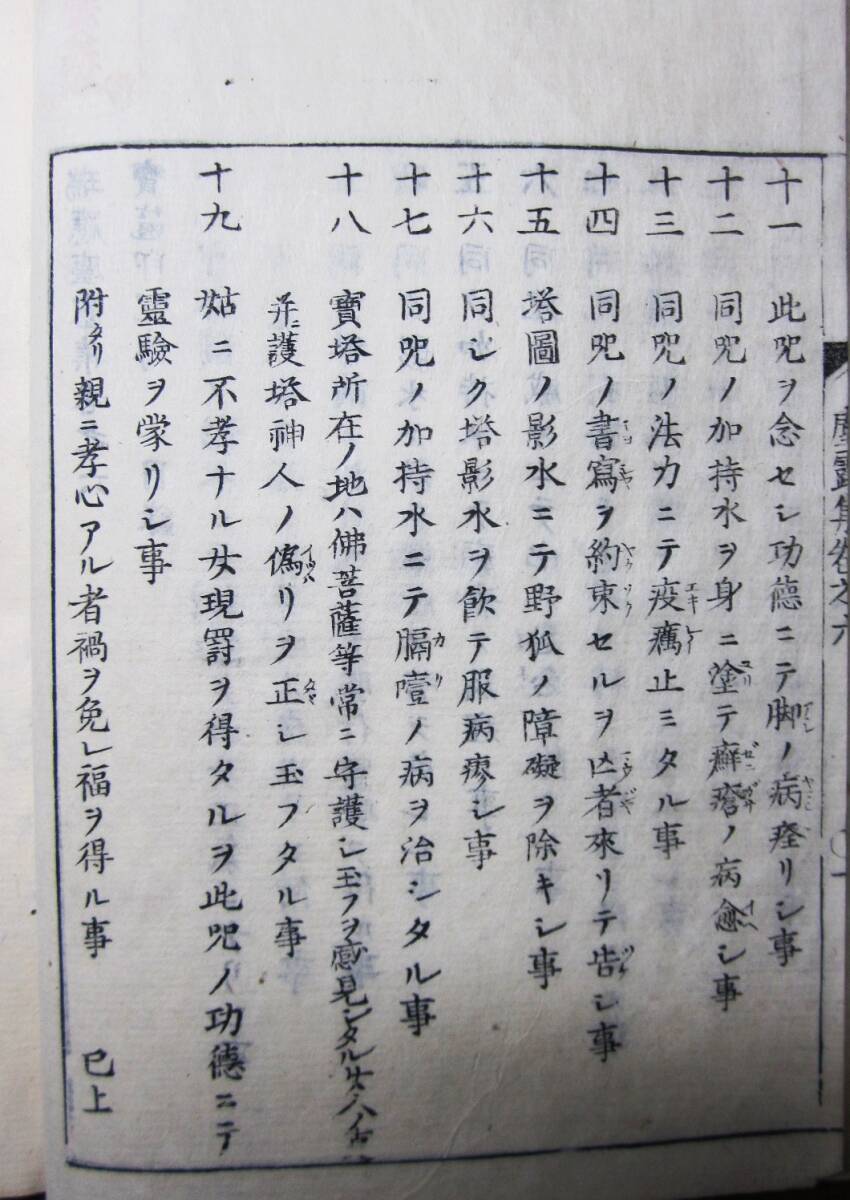 十一 此咒ヲ念セシ功德ニテ脚ノ病痊リシ事
十二 同咒ノ加持水ヲ身ニ塗テ癬瘡ノ病愈シ事
十三 同咒ノ法力ニテ疫癘止ミタル事
十四 同咒ノ書寫ヲ約束セルヲ亡者來リテ告シ事
十五 塔圖ノ影水ニテ野狐ノ障礙ヲ除キシ事
十六 同シク塔影水ヲ飲テ服病瘳シ事
十七 同咒ノ加持水ニテ膈噎ノ病ヲ治シタル事
十八 寶塔所在ノ地ハ佛菩薩等常ニ守護シ玉フヲ感見シタル
并ニ護塔神人ノ偽リヲ正シ玉フタル事
十九 姑ニ不孝ナル女現罰ヲ得タルヲ此咒ノ功德ニテ
靈驗ヲ蒙リシ事
附タリ親ニ孝心アル者禍ヲ免レ福ヲ得ル事 已上
集卷之六